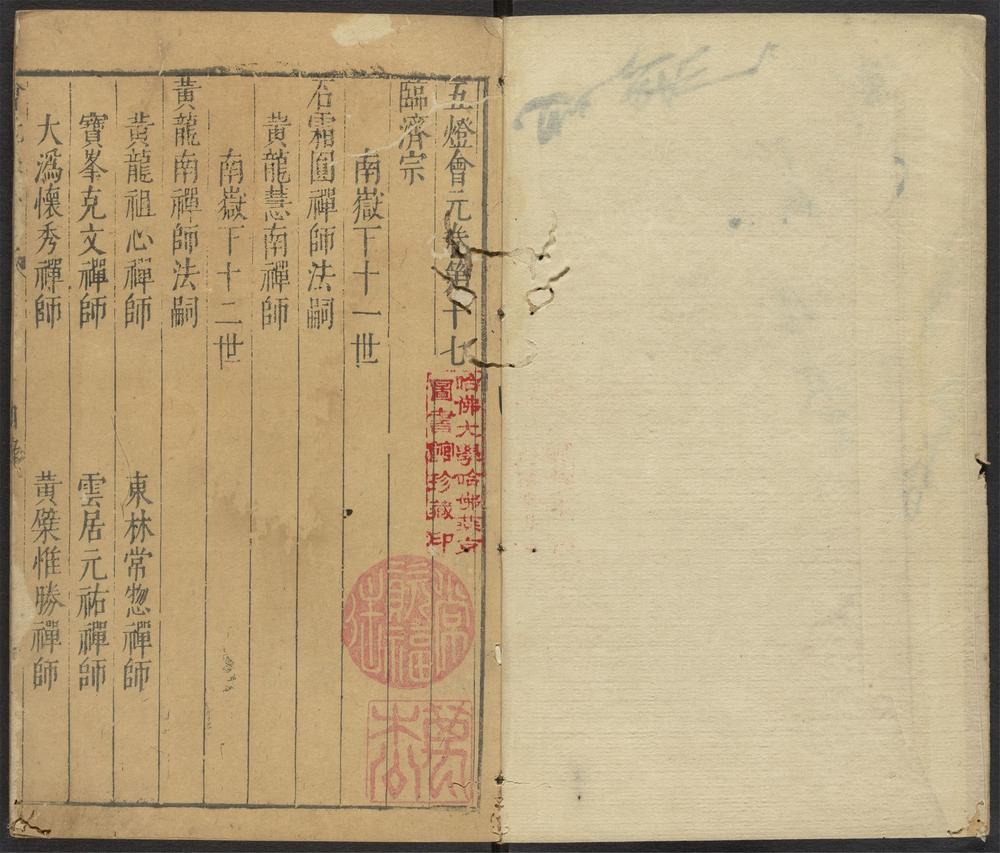 五燈會元卷第十七
臨濟宗
南嶽下十一世
石霜圓禪師法嗣
黃龍慧南禪師
南嶽下十二世
黃龍南禪師法嗣
黃龍祖心禪師
東林常惣禪師
寶峯克文禪師
雲居元祐禪師
大溈懷秀禪師
黃檗惟勝禪師
哈佛大學哈佛燕京
圖書館珍藏印